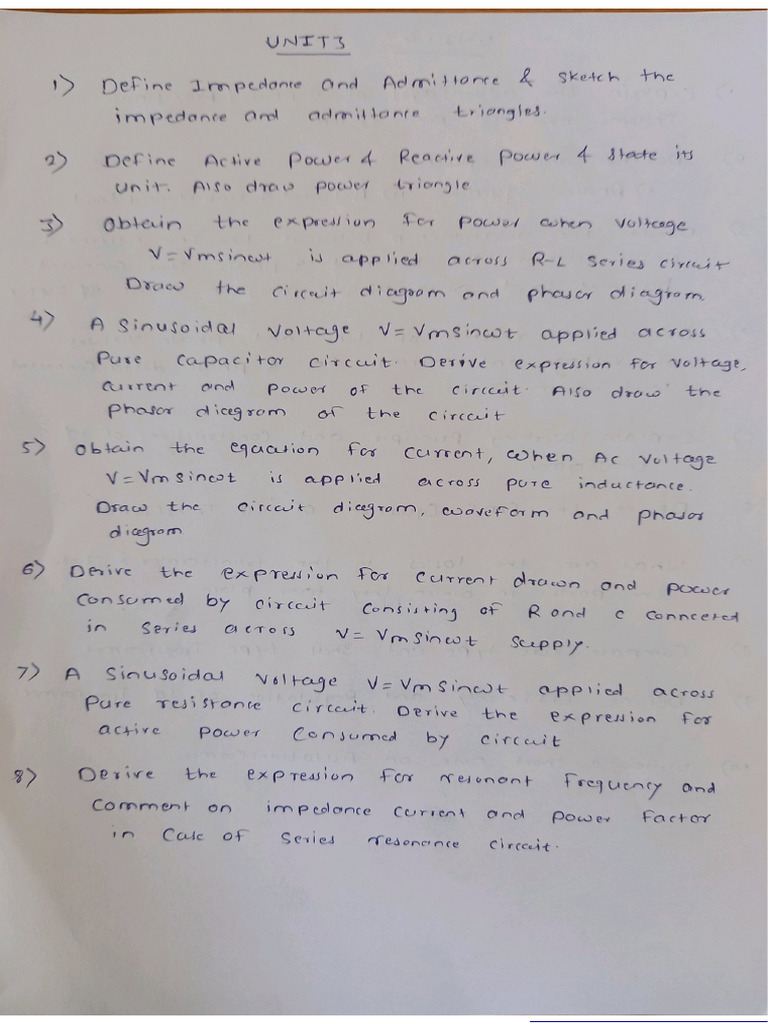 UNIT 3
1) Define Impedance and Admittance & sketch the
impedance and admittance triangles.
2) Define Active Power & Reactive power & state its
unit. Also draw power triangle
3) Obtain the expression for power when voltage
V=Vmsinωt is applied across R-L series circuit
Draw the circuit diagram and phasor diagram.
4) A Sinusoidal Voltage V=Vmsinωt applied across
Pure Capacitor circuit. Derive expression for voltage,
current and power of the circuit. Also draw the
phasor diagram of the circuit
5) Obtain the equation for current, when AC Voltage
V=Vmsinωt is applied across pure inductance.
Draw the circuit diagram, waveform and phasor
diagram
6) Derive the expression for current drawn and power
consumed by circuit consisting of R and C connected
in series across V=Vmsinωt supply.
7) A Sinusoidal Voltage V=Vmsinωt applied across
pure resistance circuit. Derive the expression for
active power consumed by circuit
8) Derive the expression for resonant frequency and
Comment on impedance current and power factor
in Case of series resonance circuit.